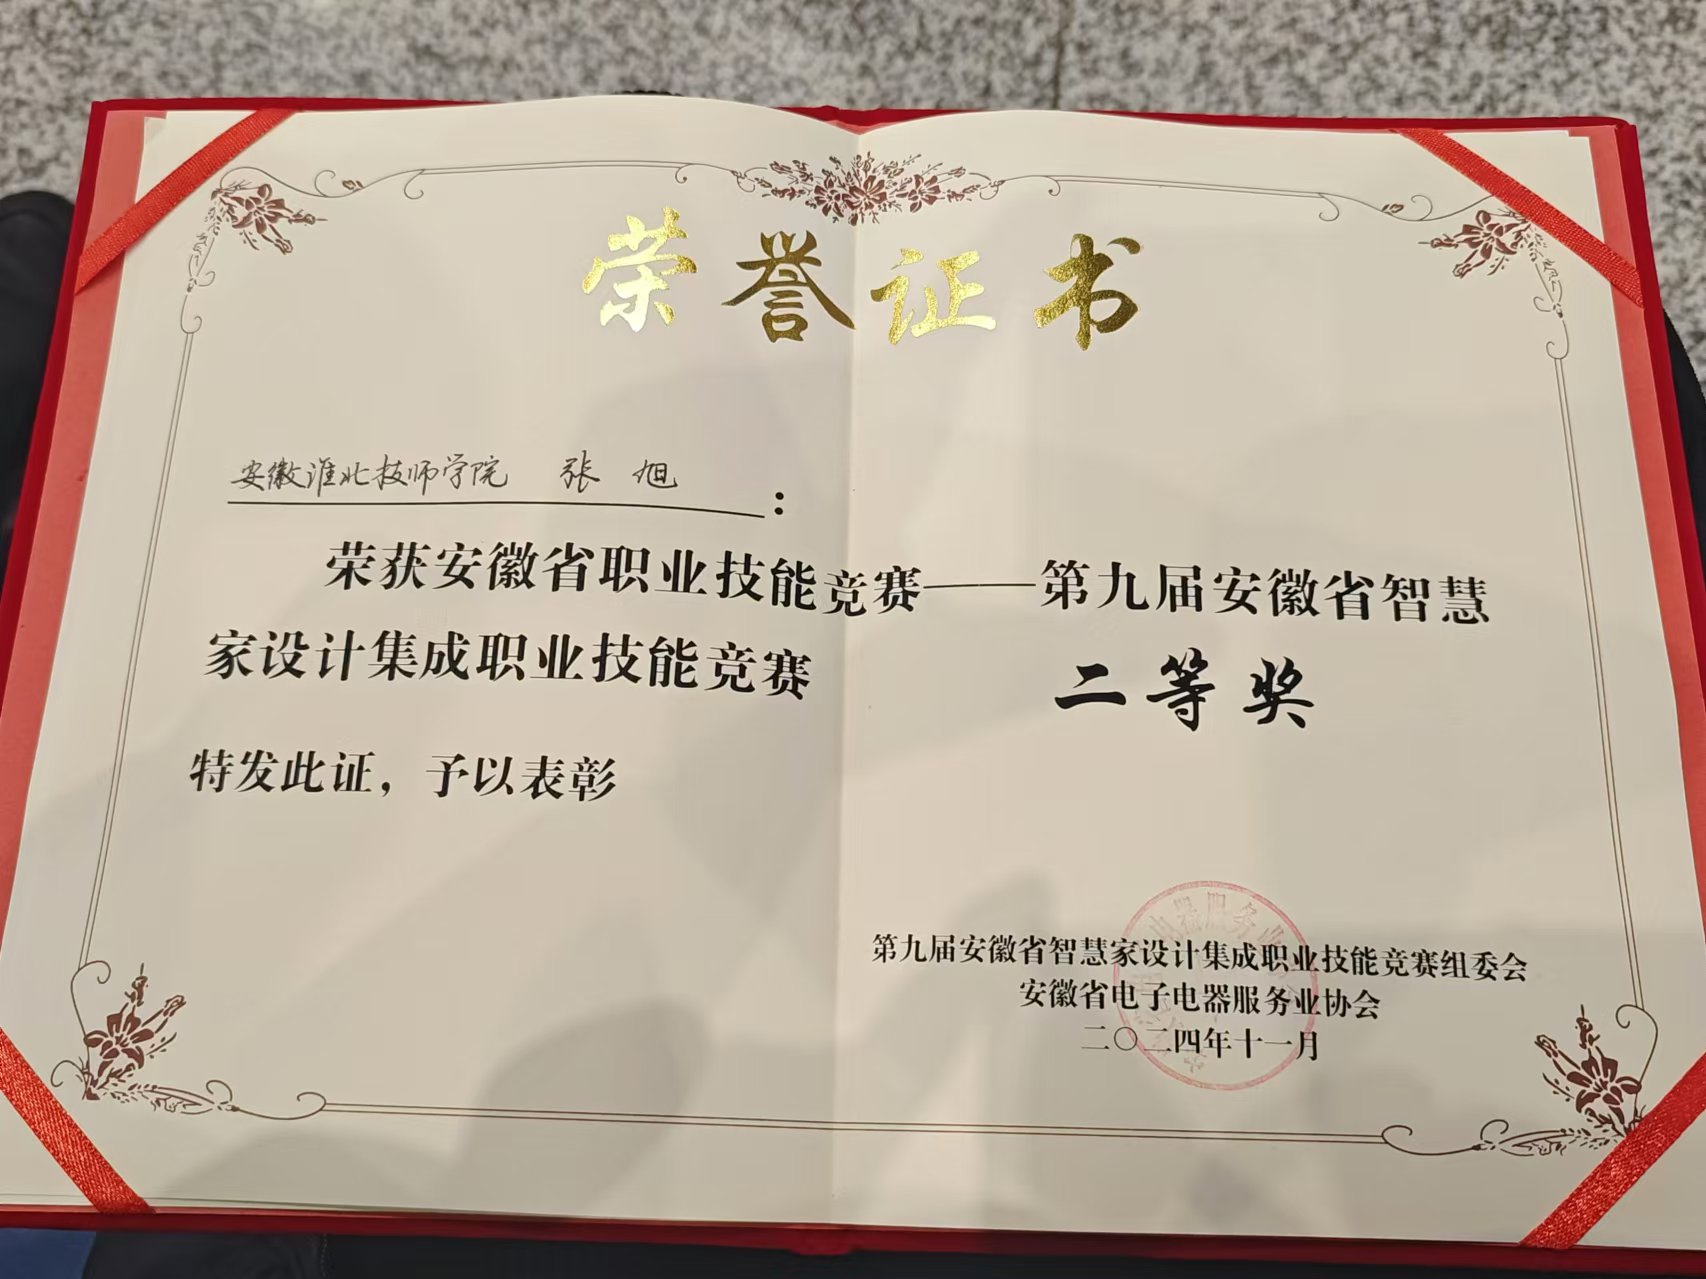 荣誉证书
安徽淮北技师学院 张旭：
荣获安徽省职业技能竞赛——第九届安徽省智慧
家设计集成职业技能竞赛 二等奖
特发此证，予以表彰
第九届安徽省智慧家设计集成职业技能竞赛组委会
安徽省电子电器服务业协会
二〇二四年十一月
电器服务业